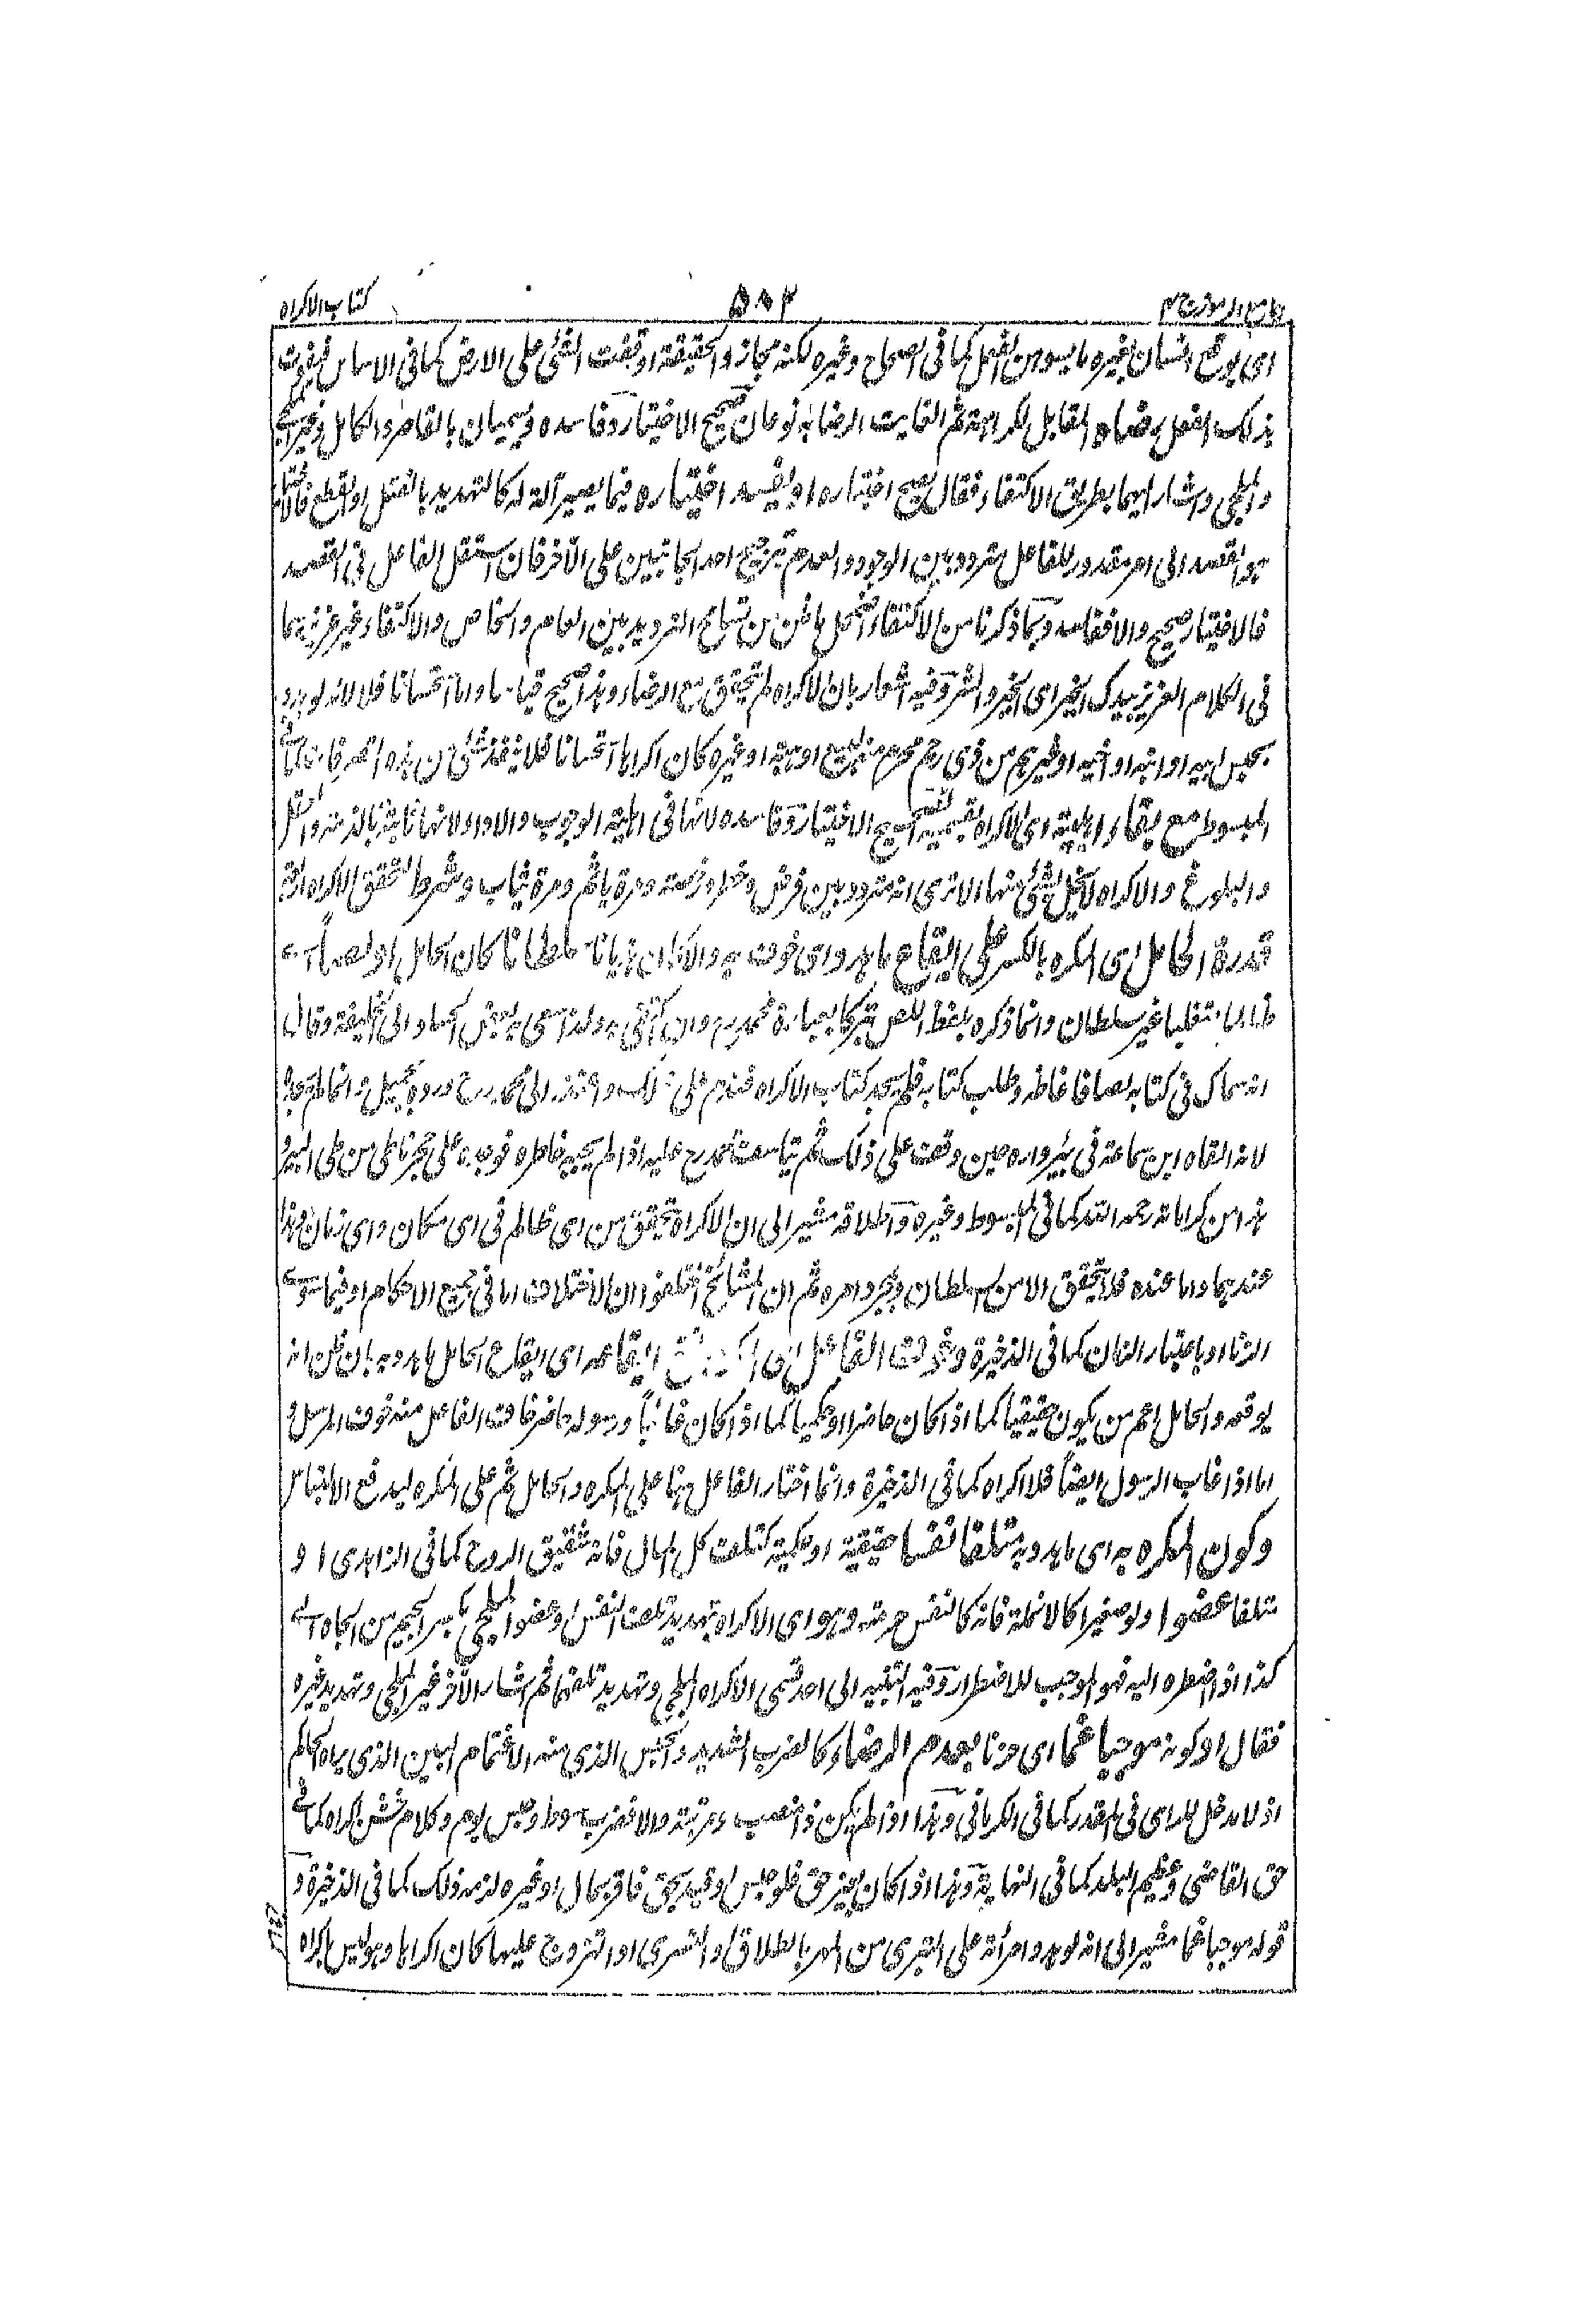 جامع الرموز ج ۴ ۵۰۳ كتاب الاكراه
اى يوقع انسان بغيره ما يسوءه من الفعل كما فى الصحاح وغيره لكنه مجاز والحقيقة اوقعت الشئ على الارض كما فى الاساس فيفوت
بذلك الفعل رضاه المقابل للكراهة ثم الفايت الرضا به نوعان صحيح الاختيار وفاسده ويسميان بالقاصر والكامل وغير الملجئ
والملجى واشار اليهما بطريق الاكتفاء فقال يصح اختياره او يفسد اختياره فيما يصير آلة له كالتهديد بالقتل او القطع فالاختيار
هو القصد الى امر مقدور للفاعل متردد بين الوجود والعدم بترجيح احد الجانبين على الآخر فان استقل الفاعل فى القصد
فالاختيار صحيح والا ففاسد وبما ذكرنا من الاكتفاء اضمحل ما ظن من تسامح الترديد بين العام والخاص والاكتفاء غير عزيز كما
فى الكلام العزيز بيدك الخير اى الخير والشر وفيه اشعار بان الاكراه لم يتحقق مع الرضاء وهذا صحيح قياسا واما استحسانا فلا لانه لو هدد
بحبس ابيه او ابنه او اخيه او غيرهم من ذى رحم محرم منه لبيع او هبة او غيره كان اكراها استحسانا فلا ينفذ شئ من هذه التصرفات كما فى
المبسوط مع بقاء اهليته اى الاكراه بقسميه الصحيح الاختيار وفاسده لا ينافى اهلية الوجوب والاداء لانها ثابتة بالذمة والعقل
والبلوغ والاكراه لا يخل بشئ منها الا ترى انه متردد بين فرض وحظر ورخصة ومرة ياثم ومرة يثاب وشرط لتحقق الاكراه اربعة
قدرة الحامل اى المكره بالكسر على ايقاع ما هدد اى خوف به والا كان هذيانا سلطانا كان الحامل او لصا اى
ظالما متغلبا غير سلطان وانما ذكره بلفظ اللص تبركا بعبارة محمد رح وان اكتفى به ولذا سعى به بعض الحساد الى الخليفة وقال
انه سماك فى كتابه لصا فاغاطه وطلب كتابه فلم يجد كتاب الاكراه فندم على ذلك واعتذر الى محمد رح ورده بجميل وانما لم يجده
لانه القاه ابن سماعة فى بئر داره حين وقعت على ذلك ثم تاسف محمد رح عليه اذ لم يجبه خاطره فوجده على حجر ناتئ من طى البير و
هذا من كراماته رحمه الله كما فى المبسوط وغيره واطلاقه مشير الى ان الاكراه يتحقق من اى ظالم فى اى مكان واى زمان وهذا
عندهما واما عنده فلا يتحقق الا من السلطان وبمجرد امره ثم ان المشائخ اختلفوا ان الاختلاف اما فى جميع الاحكام او فيما سوى
الزنا او باعتبار الزمان كما فى الذخيرة وخوف الفاعل اى ايقاعه اى ايقاع الحامل ما هدد به بان ظن انه
يوقعه والحامل اعم من يكون حقيقيا كما اذا كان حاضرا او حكميا كما اذا كان غائبا ورسوله حاضر فخاف الفاعل منه خوف المرسل و
اما اذا غاب الرسول ايضا فلا اكراه كما فى الذخيرة وانما اختار الفاعل ههنا على المكره والحامل ثم على المكره ليدفع الالتباس
وكون المكره به اى ما هدد به متلفا نفسا حقيقية او حكمية كتلف كل المال فانه شقيق الروح كما فى الزاهدى او
متلفا عضوا ولو صغيرا كالانملة فانه كالنفس حرمة وهو اى الاكراه بتهديد تلف النفس او عضو الملجى بكسر الجيم من الجاه الى
كذا اذا اضطره اليه فهو الموجب للاضطرار وفيه التنبيه الى احد قسمى الاكراه الملجى وتهديد تلفهما ثم اشار الآخر غير الملجى وتهديد غيره
فقال او كونه موجبا غما اى حزنا يعدم الرضاء كالضرب الشديد والحبس الذى منه الاغتمام البين الذى يراه الحاكم
اذ لا مدخل للراى فى المقدر كما فى الكرمانى وهذا اذا لم يكن ذا منصب ومرتبة والا فضرب سوط وحبس يوم وكلام خشن اكراه كما فى
حق القاضى وعظيم البلد كما فى النهاية وهذا اذا كان بغير حق فلو حبس او قيد بحق فاقر بمال او غيره لزمه ذلك كما فى الذخيرة و
قوله موجبا غما مشير الى انه لو هدد امرأته على التبرى من المهر بالطلاق او التسرى او التزوج عليها كان اكراها وهو ليس باكراه